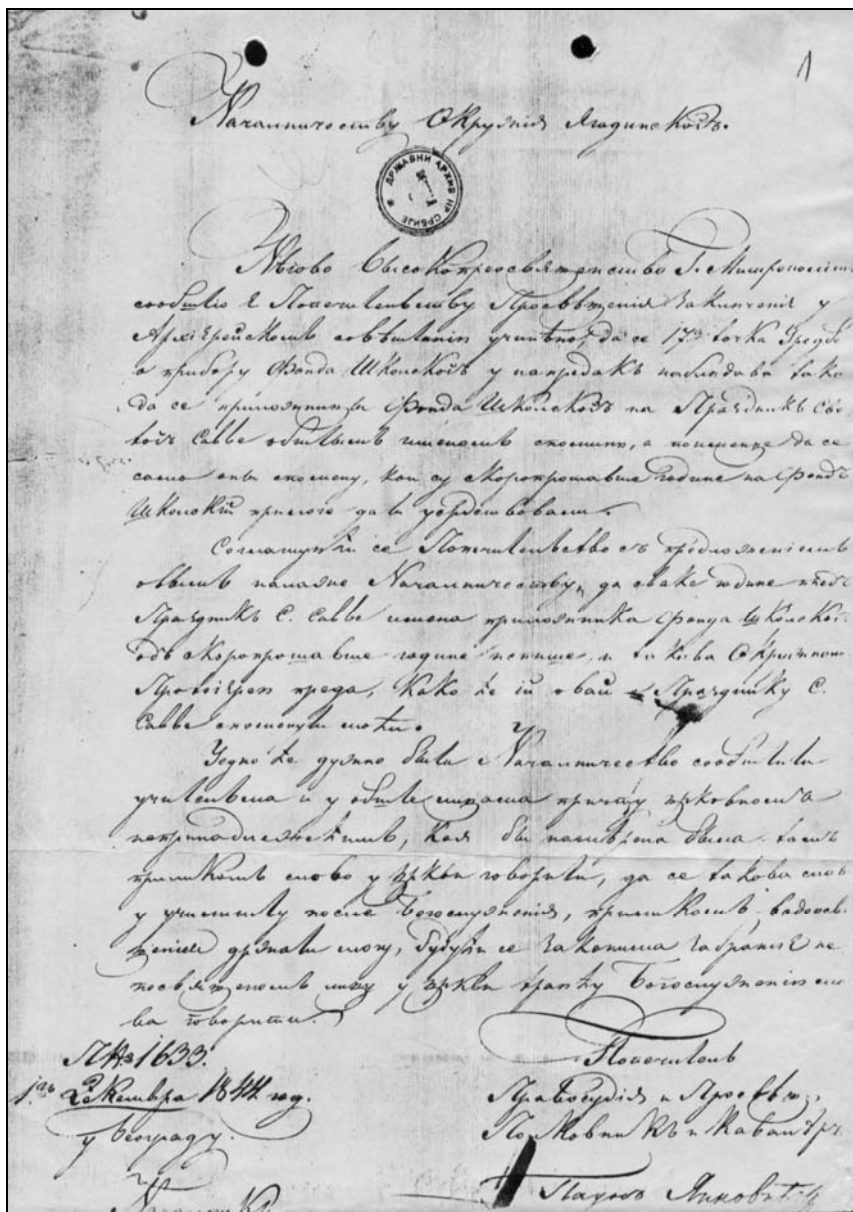 1
Началничеству Окружія Ягодинскогъ.
ДРЖАВНИ АРХИВ НР СРБИЈЕ
Нѣгово Высокопреосвященство Г. Митрополитъ
сообштіо є Попечительству Просвѣщенія заключеніе у
Архіерейскомъ совѣтанію учинѣно, да се 17. точка Уредбе
о прибору Фонда Школскогъ у напредакъ наблюдава тако
да се приложници Фонда Школскогъ на Праздникъ Све-
тогъ Саве обштымъ именомъ спомину, а поименце да се
само оны спомену, кои су скоропрошавше године на Фондъ
Школскій прилоге дати усрдствовали.
Соглашуюћи се Попечительство съ предложеніемъ
овымъ налаже Началничеству, да сваке године предъ
Праздникъ С. Саве имена приложника Фонда Школскогъ
одъ скоропрошавше године попише, и такова Окружномъ
Протоіерею преда, како ће ій овай о Празднику С.
Саве споменути моћи.
Уедно ће дужно быти Началничество сообштити
учительима и у обште лицама причту црковноме не
непринадлежећимъ, коя бы намѣрена была томъ
приликомъ слово у цркви говорити, да се такова слова
у училишту после Богослуженія, приликомъ водоосв-
щенія држати могу, будући се законима забранює не
посвященомъ лицу у цркви транћу Богослуженію сло-
ва говорити.
П№ 1633.
1. Декемвра 1844 год.
у Београду.
Попечитель
Правосудія и Просвѣщ.
Полковникъ и Кавалѣръ
Паунъ Янковићъ